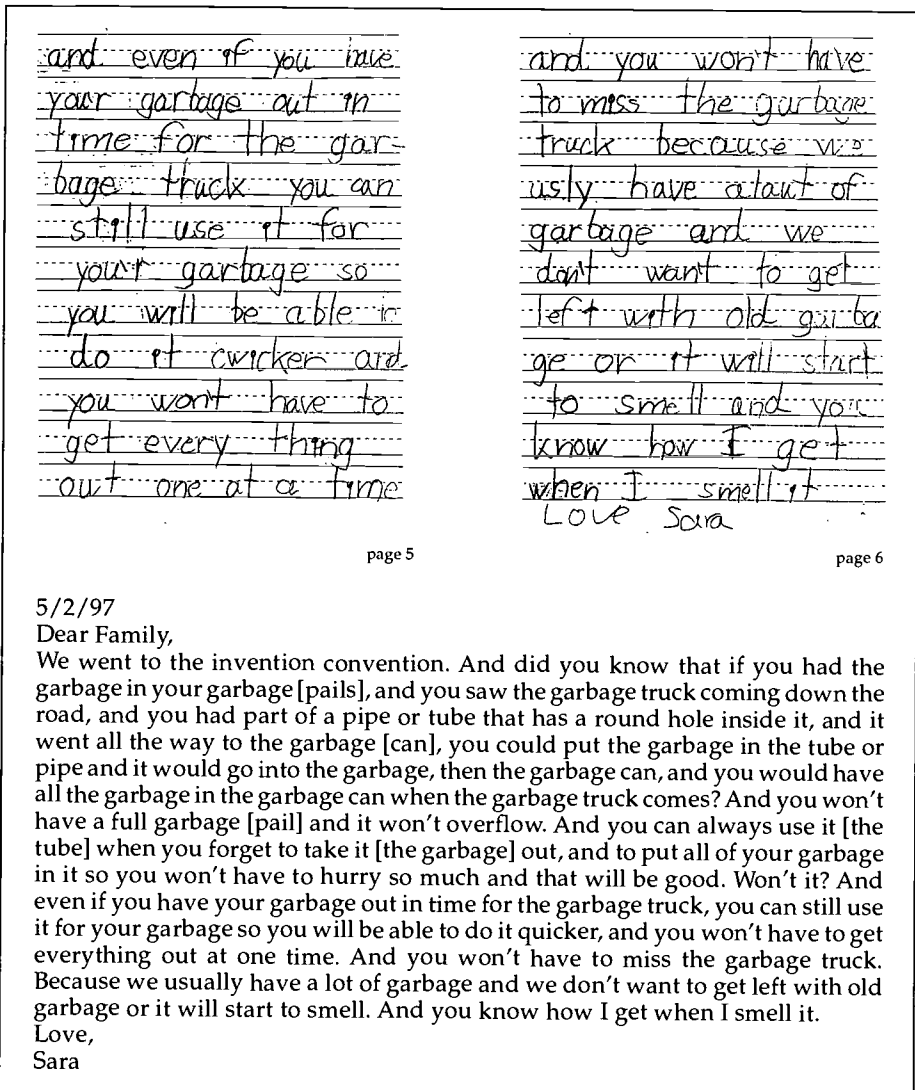 and even if you have
your garbage out in
time for the gar-
bage truck you can
still use it for
your garbage so
you will be able to
do it cwicker and
you won't have to
get every thing
out one at a time
page 5
and you won't have
to miss the garbage
truck because we
usly have alaut of
garbage and we
don't want to get
left with old garba
ge or it will start
to smell and you
know how I get
when I smell it
Love Sara
page 6
5/2/97
Dear Family,
We went to the invention convention. And did you know that if you had the
garbage in your garbage [pails], and you saw the garbage truck coming down the
road, and you had part of a pipe or tube that has a round hole inside it, and it
went all the way to the garbage [can], you could put the garbage in the tube or
pipe and it would go into the garbage, then the garbage can, and you would have
all the garbage in the garbage can when the garbage truck comes? And you won't
have a full garbage [pail] and it won't overflow. And you can always use it [the
tube] when you forget to take it [the garbage] out, and to put all of your garbage
in it so you won't have to hurry so much and that will be good. Won't it? And
even if you have your garbage out in time for the garbage truck, you can still use
it for your garbage so you will be able to do it quicker, and you won't have to get
everything out at one time. And you won't have to miss the garbage truck.
Because we usually have a lot of garbage and we don't want to get left with old
garbage or it will start to smell. And you know how I get when I smell it.
Love,
Sara